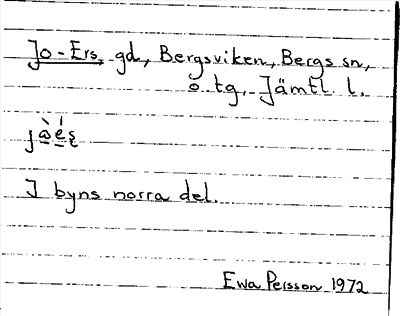 Jo-Ers, gd, Bergsviken, Bergs sn,
ö. tg. Jämtl. l.
jὰé̱ş
I byns norra del.
Ewa Persson 1972